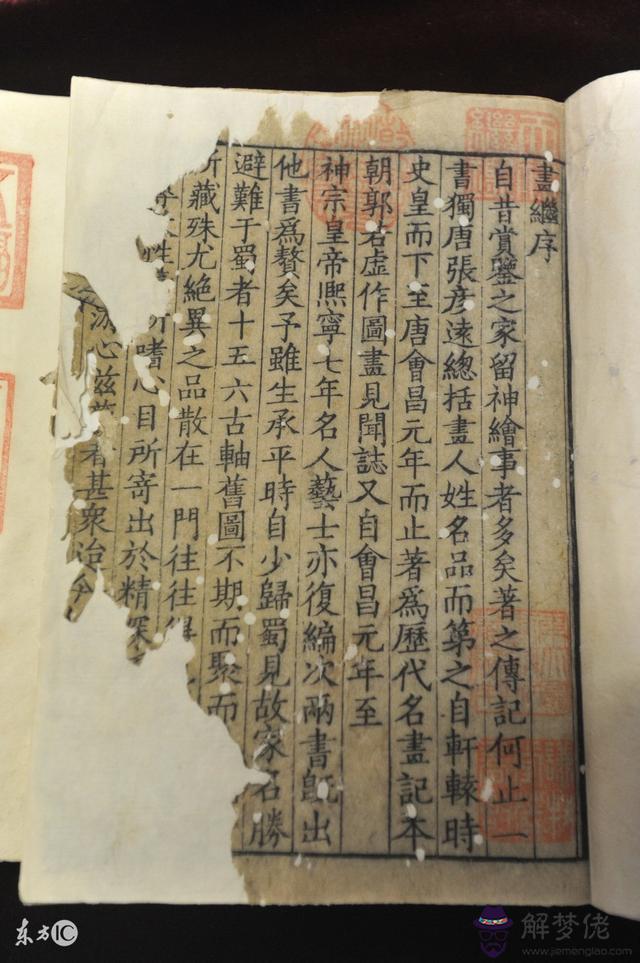 畫繼序
自昔賞鑒之家留神繪事者多矣著之傳記何止一
書獨唐張彥遠總括畫人姓名品而第之自軒轅時
史皇而下至唐會昌元年而止著爲歷代名畫記本
朝郭若虛作圖畫見聞誌又自會昌元年至
神宗皇帝熈寧七年名人藝士亦復編次兩書旣出
他書爲贅矣予雖生承平時自少歸蜀見故家名勝
避難于蜀者十五六古軸舊圖不期而聚而
所藏殊尤絶異之品散在一門往往得
性所嗜心目所寄出於精深
游心茲藝者甚衆迨今
东方IC
解梦佬
www.jiemenglao.com